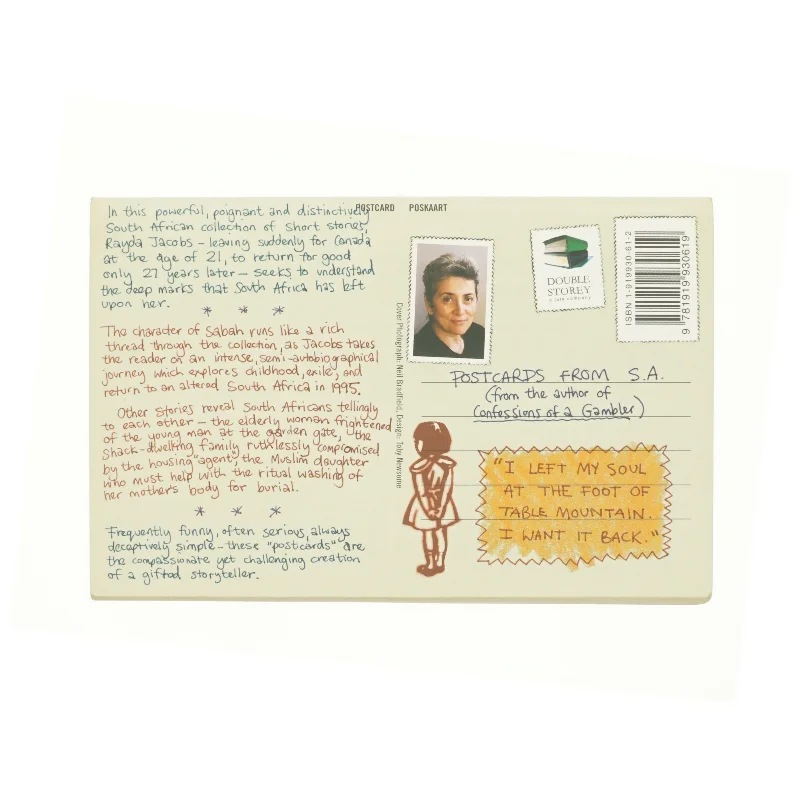 In this powerful, poignant and distinctively
South African collection of short stories,
Rayda Jacobs – leaving suddenly for Canada
at the age of 21, to return for good
only 27 years later – seeks to understand
the deep marks that South Africa has left
upon her.
* * *
The character of Sabah runs like a rich
thread through the collection, as Jacobs takes
the reader on an intense, semi-autobiographical
journey which explores childhood, exile, and
return to an altered South Africa in 1995.
Other stories reveal South Africans tellingly
to each other – the elderly woman frightened
of the young man at the garden gate, the
shack-dwelling family ruthlessly compromised
by the housing "agent", the Muslim daughter
who must help with the ritual washing of
her mother's body for burial.
* * *
Frequently funny, often serious, always
deceptively simple – these "postcards" are
the compassionate yet challenging creation
of a gifted storyteller.
POSTCARD POSKAART
Cover Photograph: Neil Bradfield, Design: Toby Newsome
DOUBLE
STOREY
a juta company
ISBN 1-919930-61-2
9 781919 930619
POSTCARDS FROM S.A.
(from the author of
Confessions of a Gambler)
"I LEFT MY SOUL
AT THE FOOT OF
TABLE MOUNTAIN.
I WANT IT BACK."